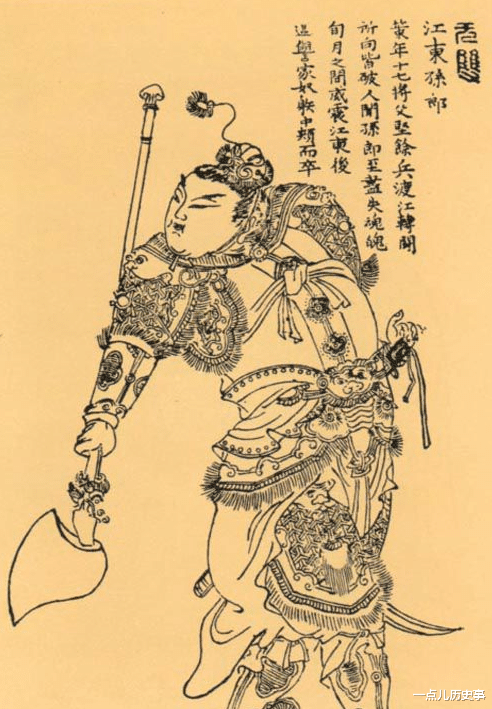 无雙
江東孫郎
策年十七將父堅餘兵渡江轉鬪
所向皆破人聞孫郎至盡失魂魄
旬月之間威震江東後
讐家奴䠶中頰而卒
一点儿历史事